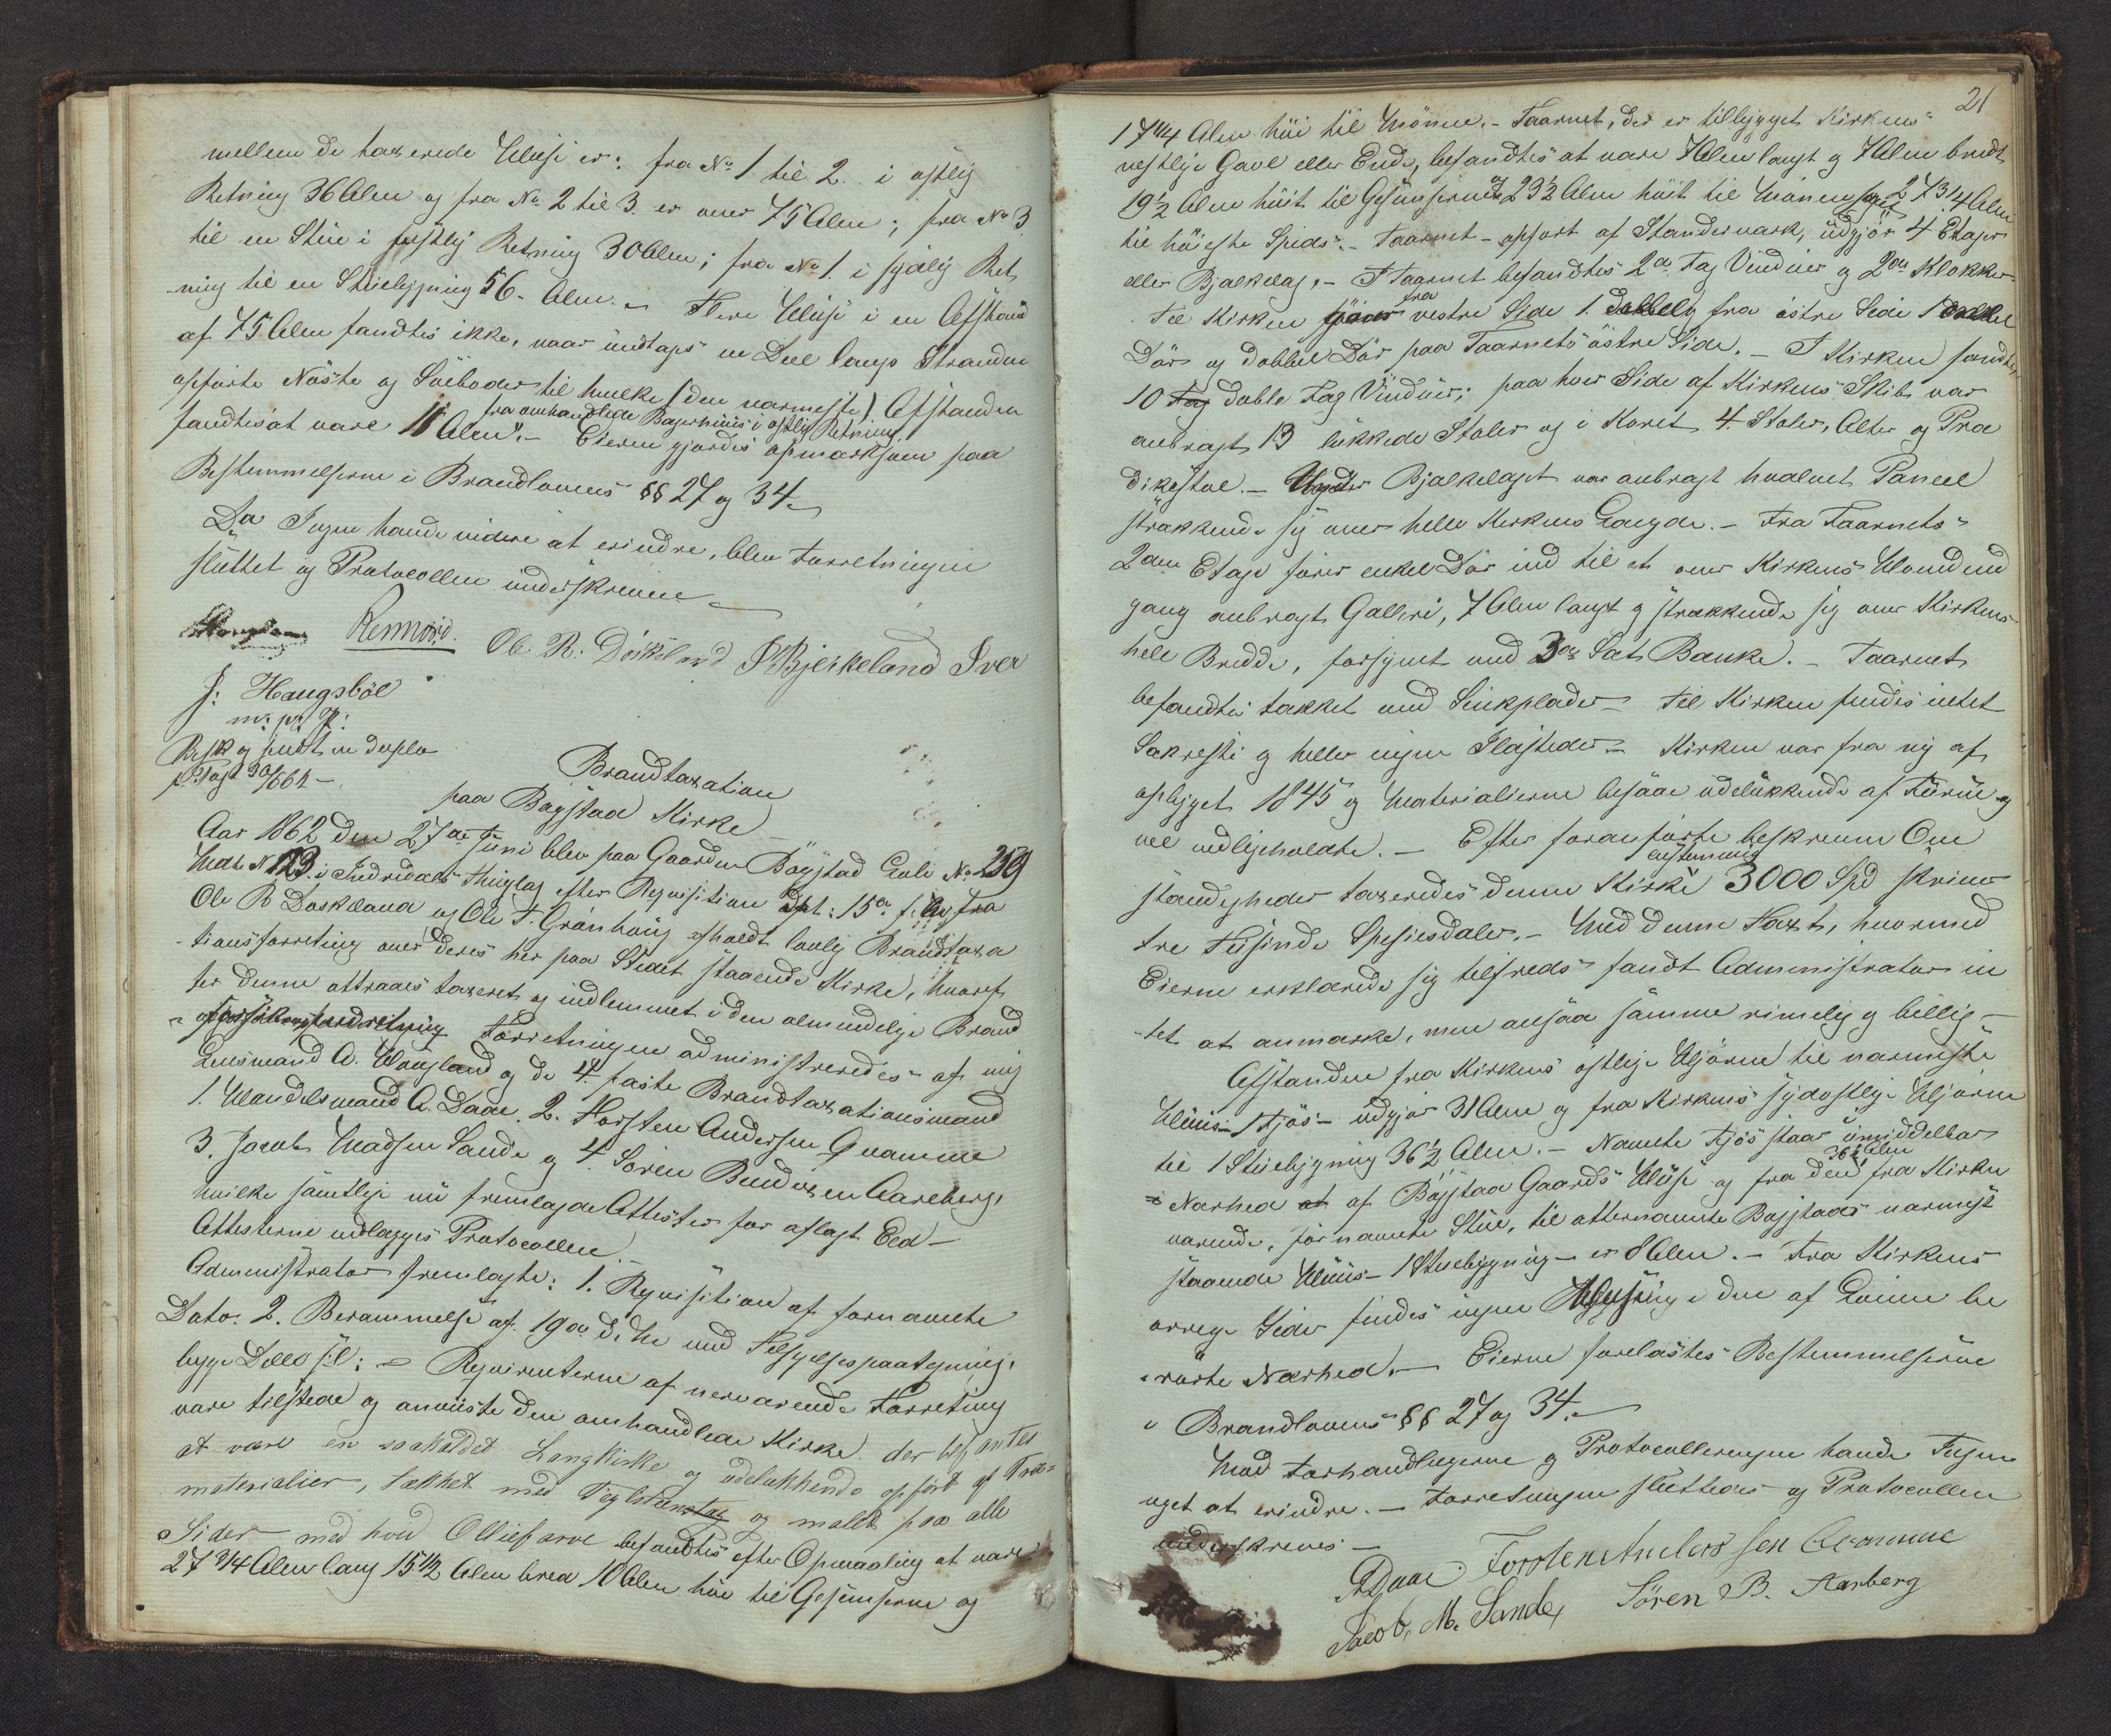 mellem de taxerede Huse er: fra No 1 til 2. i østlig
Retning 36 Alen og fra No 2 til 3. er over 75 Alen; fra No 3
til en Stue i østlig Retning 30 Alen; fra No 1. i sydlig Ret
ning til en Stuebygning 56 Alen. – Flere Huse i en Afstand
af 75 Alen fandtes ikke, naar undtages en Deel langs Stranden
opførte Nøste og Søeboder til hvilke (den nærmeste) Afstanden
fra omhandlede Bagerhuus i østlig Retning
fandtes at være 11 Alen". – Eieren gjordes opmærksom paa
Bestemmelserne i Brandlovens §§ 27 og 34. –
Da Ingen havde videre at erindre, blev Forretningen
sluttet og Protocollen underskreven –
Rennord. Ol. R. Döskeland P Bjerkeland Iver
J: Haugsböe
m: p: P:
Besk og sendt in duplo
p. Post 30/6 62 –
Brandtaxation
paa Bøystad Kirke
Aar 1862 den 27de Juni blev paa Gaarden Bøystad Løbe No 259
Matr No 123. i Indredals Thinglag efter Requisition Dat: 15de f: M: fra
Ole R Døskeland og Ole F. Grønhøug afholdt lovlig Brandtaxa
tionsforretning over deres her paa Stedet staaende Kirke, hvoref
ter denne attraaes taxeret og indlemmet i den almindelige Brand
forsikringsindretning Forretningen administreredes af mig
Lensmand A. Hougland og de 4. faste Brandtaxationsmænd
1. Handelsmand A. Daae. 2. Torsten Andersen Qvamme
3. Jacob Madsen Sande og 4. Søren Bendixen Aareberg,
hvilke samtlige nu fremlagde Attester for aflagt Eed –
Attesterne vedlægges Protocollen.
Administrator fremlagte: 1. Requisition af fornævnte
Dato. 2. Berammelse af 19de d: M: med Tilsigelsespaategning.
begge Docc s: l: – Requirenterne af nærværende Forretning
vare tilstede og anviiste den omhandlede Kirke der befantes
at være en saakaldet Langkirke og udelukkende opført af Træ-
materialier, tækket med Teglsteenstag og malet paa alle
Sider med hvid Olliefarve befandtes efter Opmaaling at være
27 3/4 Alen lang 15 1/2 Alen bred 10 Alen høi til Gesimserne og
21
17 1/4 Alen høi til Mønnen. – Taarnet, der er tilbygget Kirkens
vestlige Gavl eller Ende, befandtes at være 7 Alen langt og 7 Alen bredt
19 1/2 Alen høit til Gesimserne og 23 1/2 Alen høit til Mønnen samt 27 3/4 Alen
til høieste Spids. – Taarnet – opført af Standerværk, udgjør 4 Etager
eller Bjælkelag. – I Taarnet befandtes 2de Fag Vinduer og 2de Klokker
Til Kirken fra vestre Side 1. dobbelt fra østre Side 1 dobbel
Dør og dobbel Dør paa Taarnets østre Side. – I Kirken fandtes
10 Fag doble Fag Vinduer; paa hver Side af Kirkens Skib var
anbragt 13 lukkede Stoler og i Koret 4 Stoler, Alter og Præ
dikestoel. – Under Bjælkelaget var anbragt hvalvet Paneel
strækkende sig over hele Kirkens Længde. – Fra Taarnets
2den Etage fører enkel Dør ind til et over Kirkens Hovedind
gang anbragt Galleri, 7 Alen langt og strækkende sig over Kirkens
hele Bredde, forsynet med 3de Sæt Bænke. – Taarnet
befandtes tækket med Sinkplader – Til Kirken findes intet
Sakresti og heller ingen Ildsteder – Kirken var fra ny af
opbygget 1845 og Materialierne bestaae udelukkende af Furru og
vel vedligeholdte. – Efter foranførte beskrevne Om
stændigheder taxeredes denne Kirke eenstemmig 3000 Spd skriver
tre Tusinde Spesiesdaler. – Med denne Taxt, hvormed
Eierne erklærede sig tilfreds fandt Administrator in
tet at anmærke, men ansaa samme rimelig og billig –
Afstanden fra Kirkens østlige Hjørne til nærmeste
Huus – 1 Fjøs – udgjør 31 Alen og fra Kirkens sydostlige Hjørne
til 1 Stuebygning 36 1/2 Alen. – Nævnte Fjøs staar umiddelbar
i Nærhed af Bøystad Gaards Huse og fra den 36 1/2 Alen fra Kirken
værende, fornævnte Stue, til atternævnte Bøystads nærmest
staaende Huus – 1 Stuebygning – er 8 Alen. – Fra Kirkens
øvrige Sider findes ingen Husinge i den af Loven be
rørte Nærhed. – Eierne forelæstes Bestemmelserne
i Brandlovens §§ 27 og 34. –
Mod Forhandlingerne og Protocolleringen havde Ingen
noget at erindre. – Forretningen sluttedes og Protocollen
underskreves –
ADaae Torsten Andersen Qvamme
Jacob. M. Sande, Sören B. Aarberg